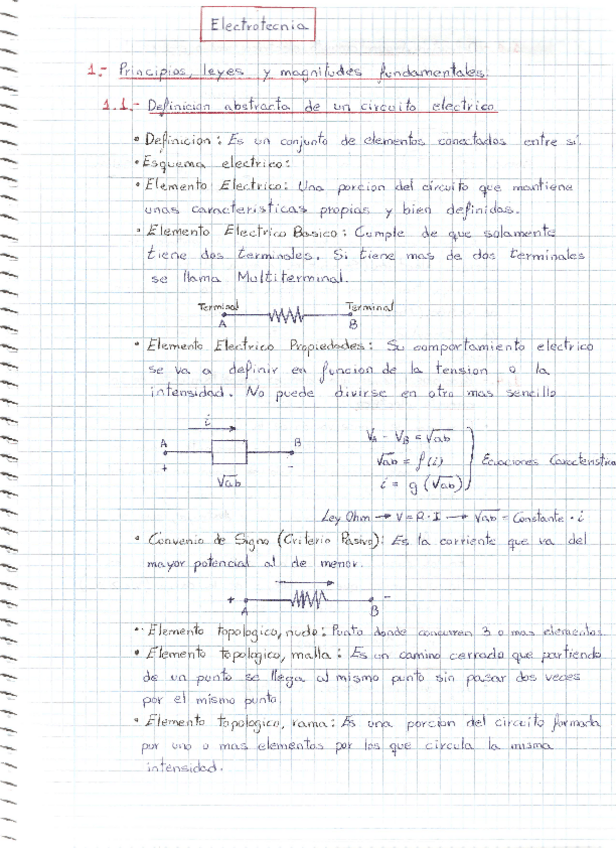 Electrotecnia
1.- Principios, leyes y magnitudes fundamentales.
1.1.- Definicion abstracta de un circuito electrico
• Definicion: Es un conjunto de elementos conectados entre si.
• Esquema electrico:
• Elemento Electrico: Una porcion del circuito que mantiene
unas caracteristicas propias y bien definidas.
• Elemento Electrico Basico: Cumple de que solamente
tiene dos terminales. Si tiene mas de dos terminales
se llama Multiterminal.
Terminal Terminal
A B
• Elemento Electrico Propiedades: Su comportamiento electrico
se va a definir en funcion de la tension o la
intensidad. No puede divirse en otro mas sencillo
i
A B
+ -
Vab
VA - VB = Vab
Vab = f(i)
i = g (Vab)
Ecuaciones Caracteristica
Ley Ohm → V = R · I → Vab = Constante · i
• Convenio de Signo (Criterio Pasivo): Es la corriente que va del
mayor potencial al de menor.
+ -
A B
• Elemento topologico, nudo: Punto donde concurren 3 o mas elementos.
• Elemento topologico, malla: Es un camino cerrado que partiendo
de un punto se llega al mismo punto sin pasar dos veces
por el mismo punto.
• Elemento topologico, rama: Es una porcion del circuito formada
por uno o mas elementos por los que circula la misma
intensidad.